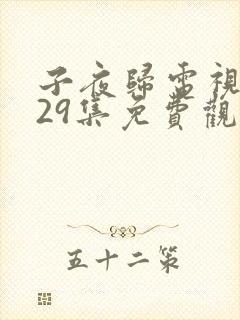 子夜歸電視
29集免費觀
五十二策